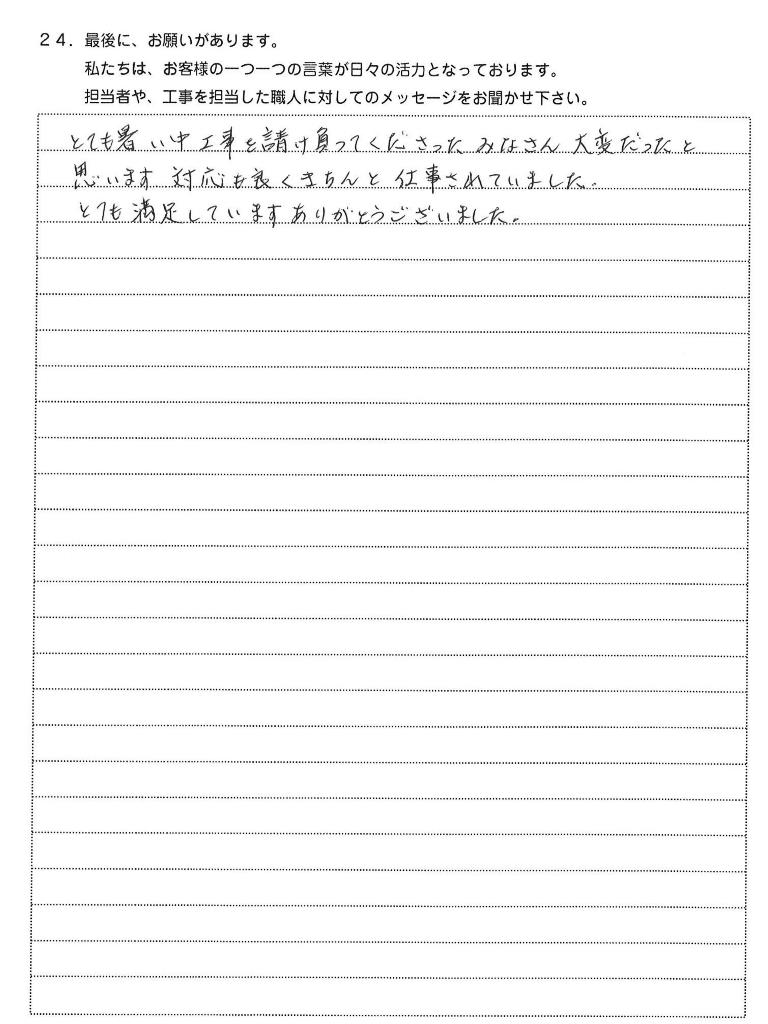 ２４．最後に、お願いがあります。
私たちは、お客様の一つ一つの言葉が日々の活力となっております。
担当者や、工事を担当した職人に対してのメッセージをお聞かせ下さい。
とても暑い中 工事を請け負ってくださった みなさん 大変だったと
思います 対応も良くきちんと 仕事されていました.
とても 満足しています ありがとうございました。